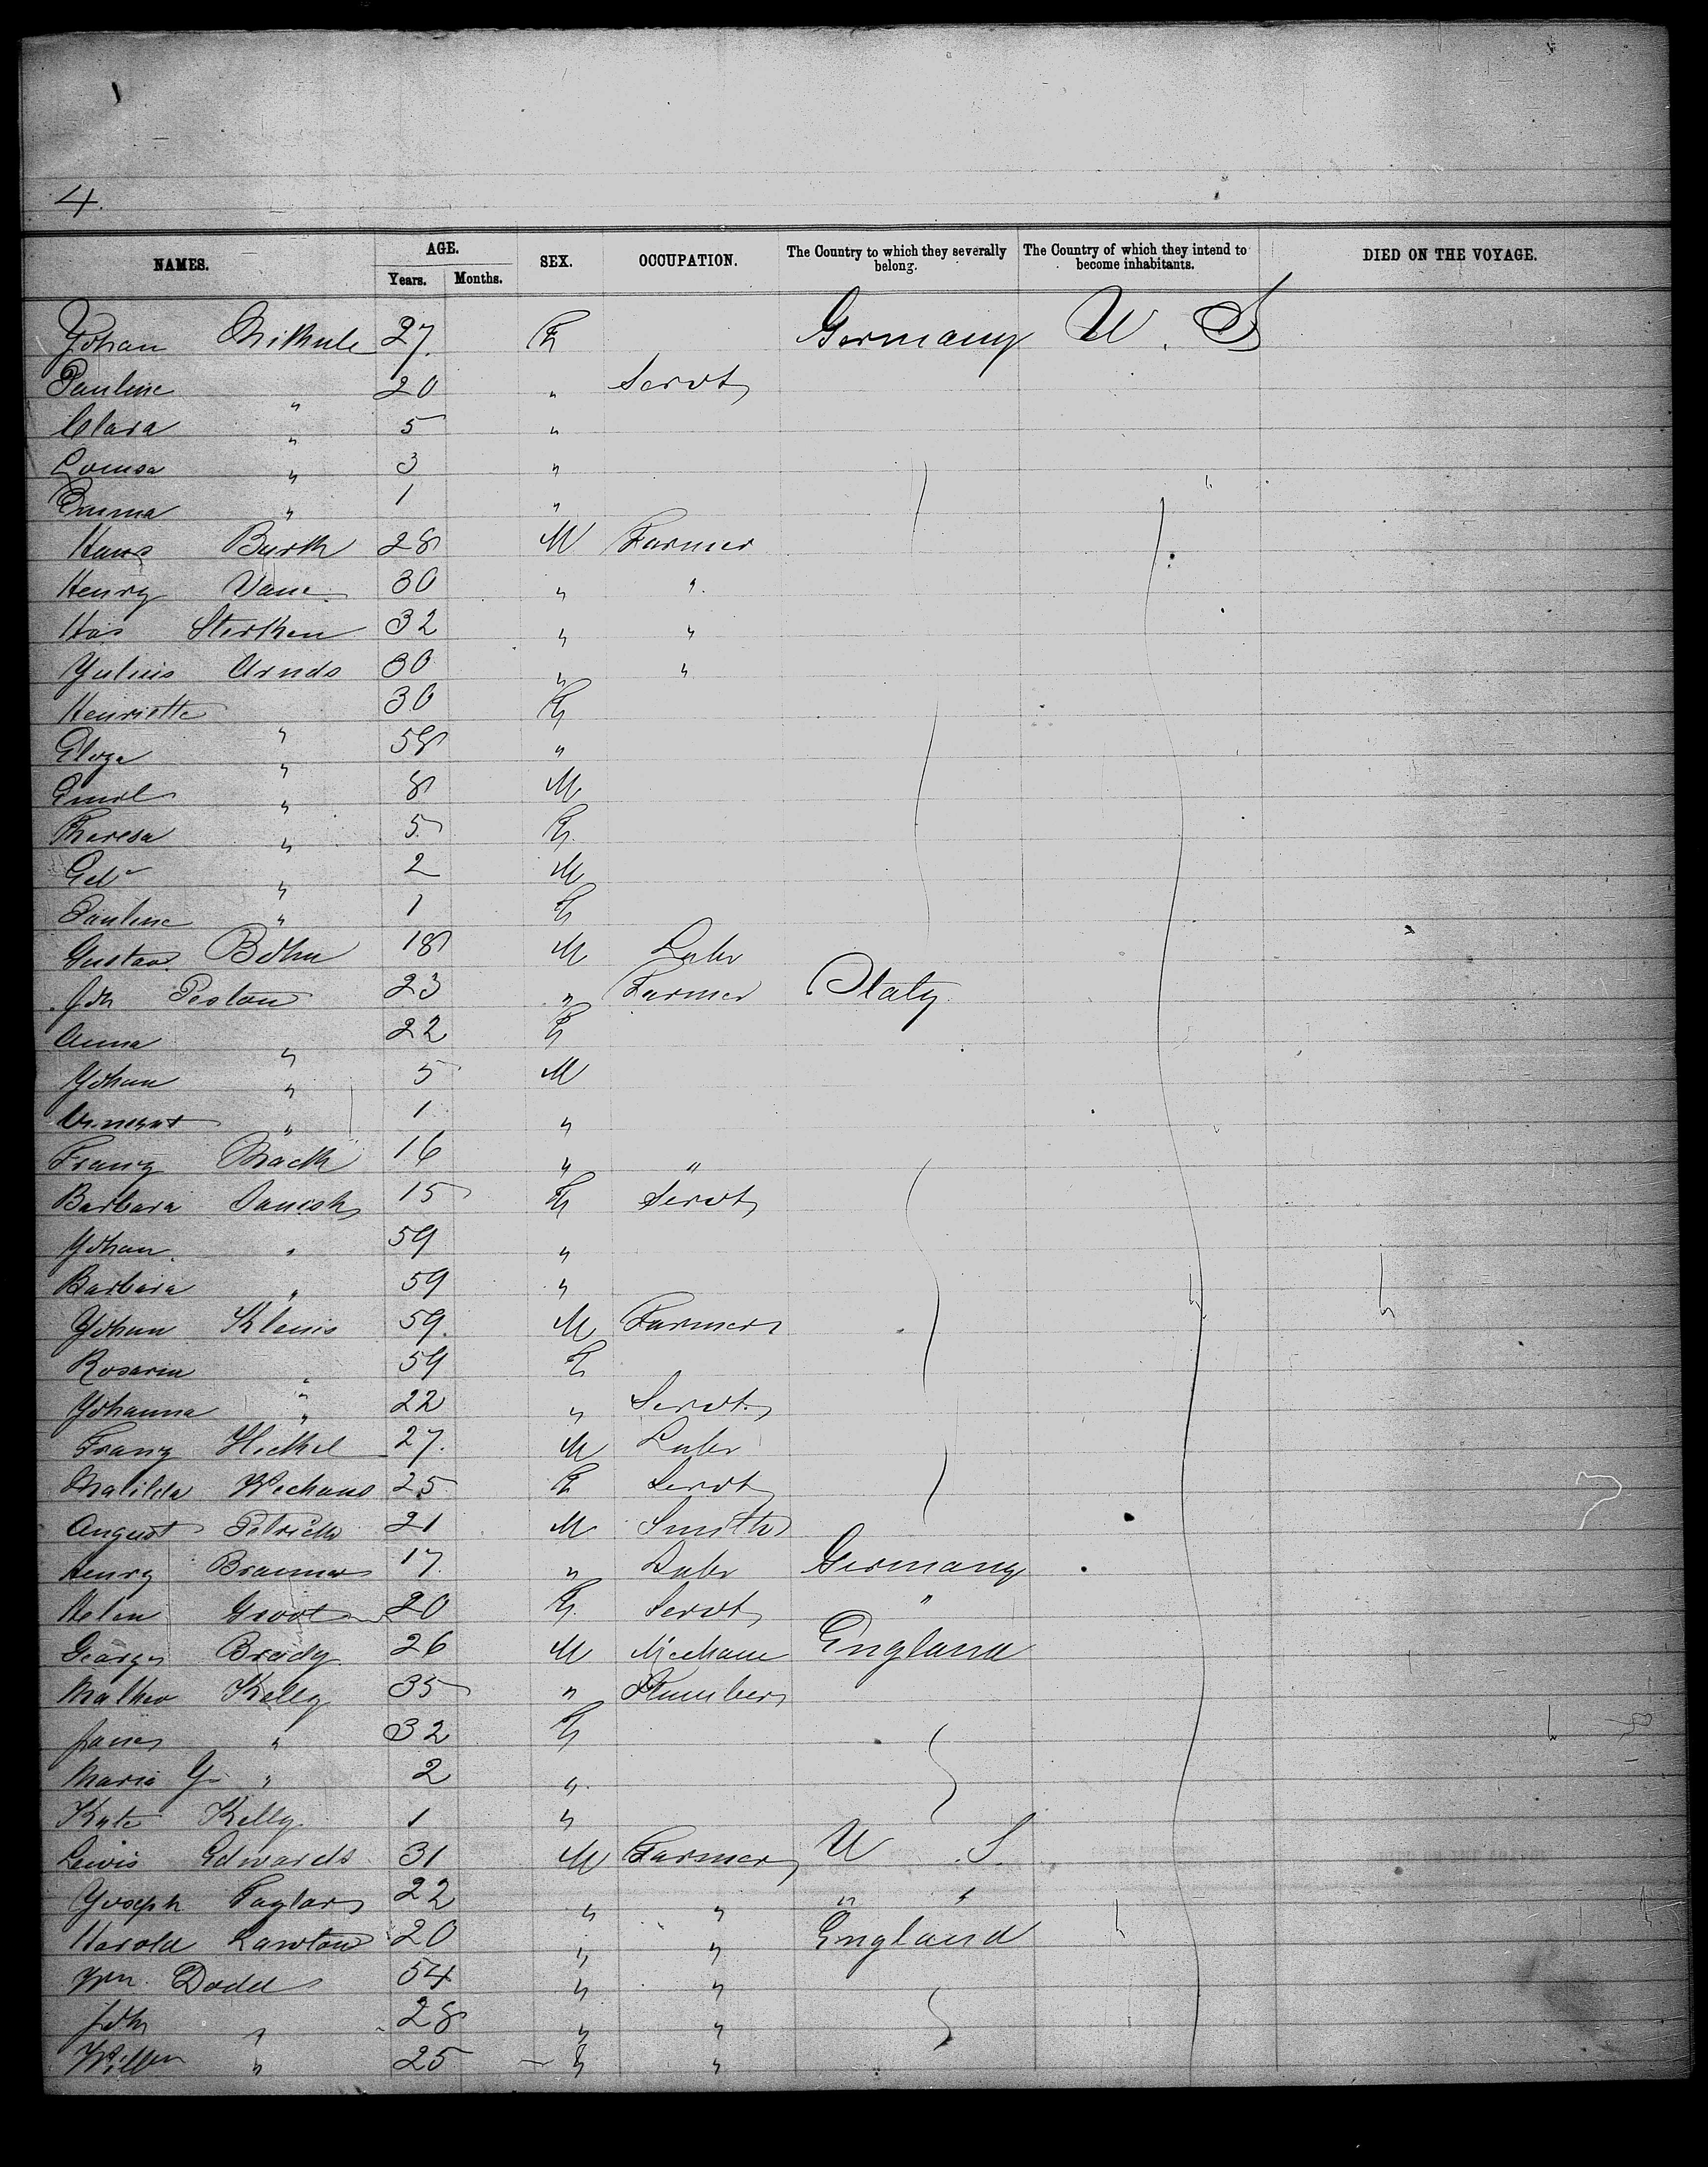 4.
NAMES. AGE. SEX. OCCUPATION. The Country to which they severally belong. The Country of which they intend to become inhabitants. DIED ON THE VOYAGE.
Years. Months.
Johan 27. F Germany U. S
Pauline " 20 " Servt
Clara " 5 "
Louisa " 3 "
Emma " 1 "
Hans Burk 28 M Farmer
Henry Dane 30 " "
Has Sterken 32 " "
Julius Arnds 30 " "
Henriette " 30 F
Eliza " 58 "
Emil " 8 M
Theresa " 5 F
Geo " 2 M
Pauline " 1 F
Gustav Bohn 18 M Labr
Joh Peolau 23 " Farmer Italy
Anna " 22 F
Johan " 5 M
" 1 "
Franz Mack 16 " "
Barbara Danish 15 F Servt
Johan " 59 "
Barbara " 59 "
Johan Klenis 59 M Farmer
Rosaria " 59 F
Johanna " 22 " Servt
Franz Hickel 27. M Labr
Matilda Wechaus 25 F Servt
August Petrich 21 M Smith
Henry Brammer 17. " Labr Germany
Helen Groot 20 F. Servt "
George Brady 26 M Mechanc England
Mathew Kelly 35 " Plumber
Janes " 32 F
Maria J " 2 "
Kate Kelly 1 "
Lewis Edwards 31 M Farmer U S.
Joseph Taylor 22 " " " "
Harold Lawton 20 " " England
Wm. Dodd 54 " "
Joh " 28 " "
Willm " 25 " "